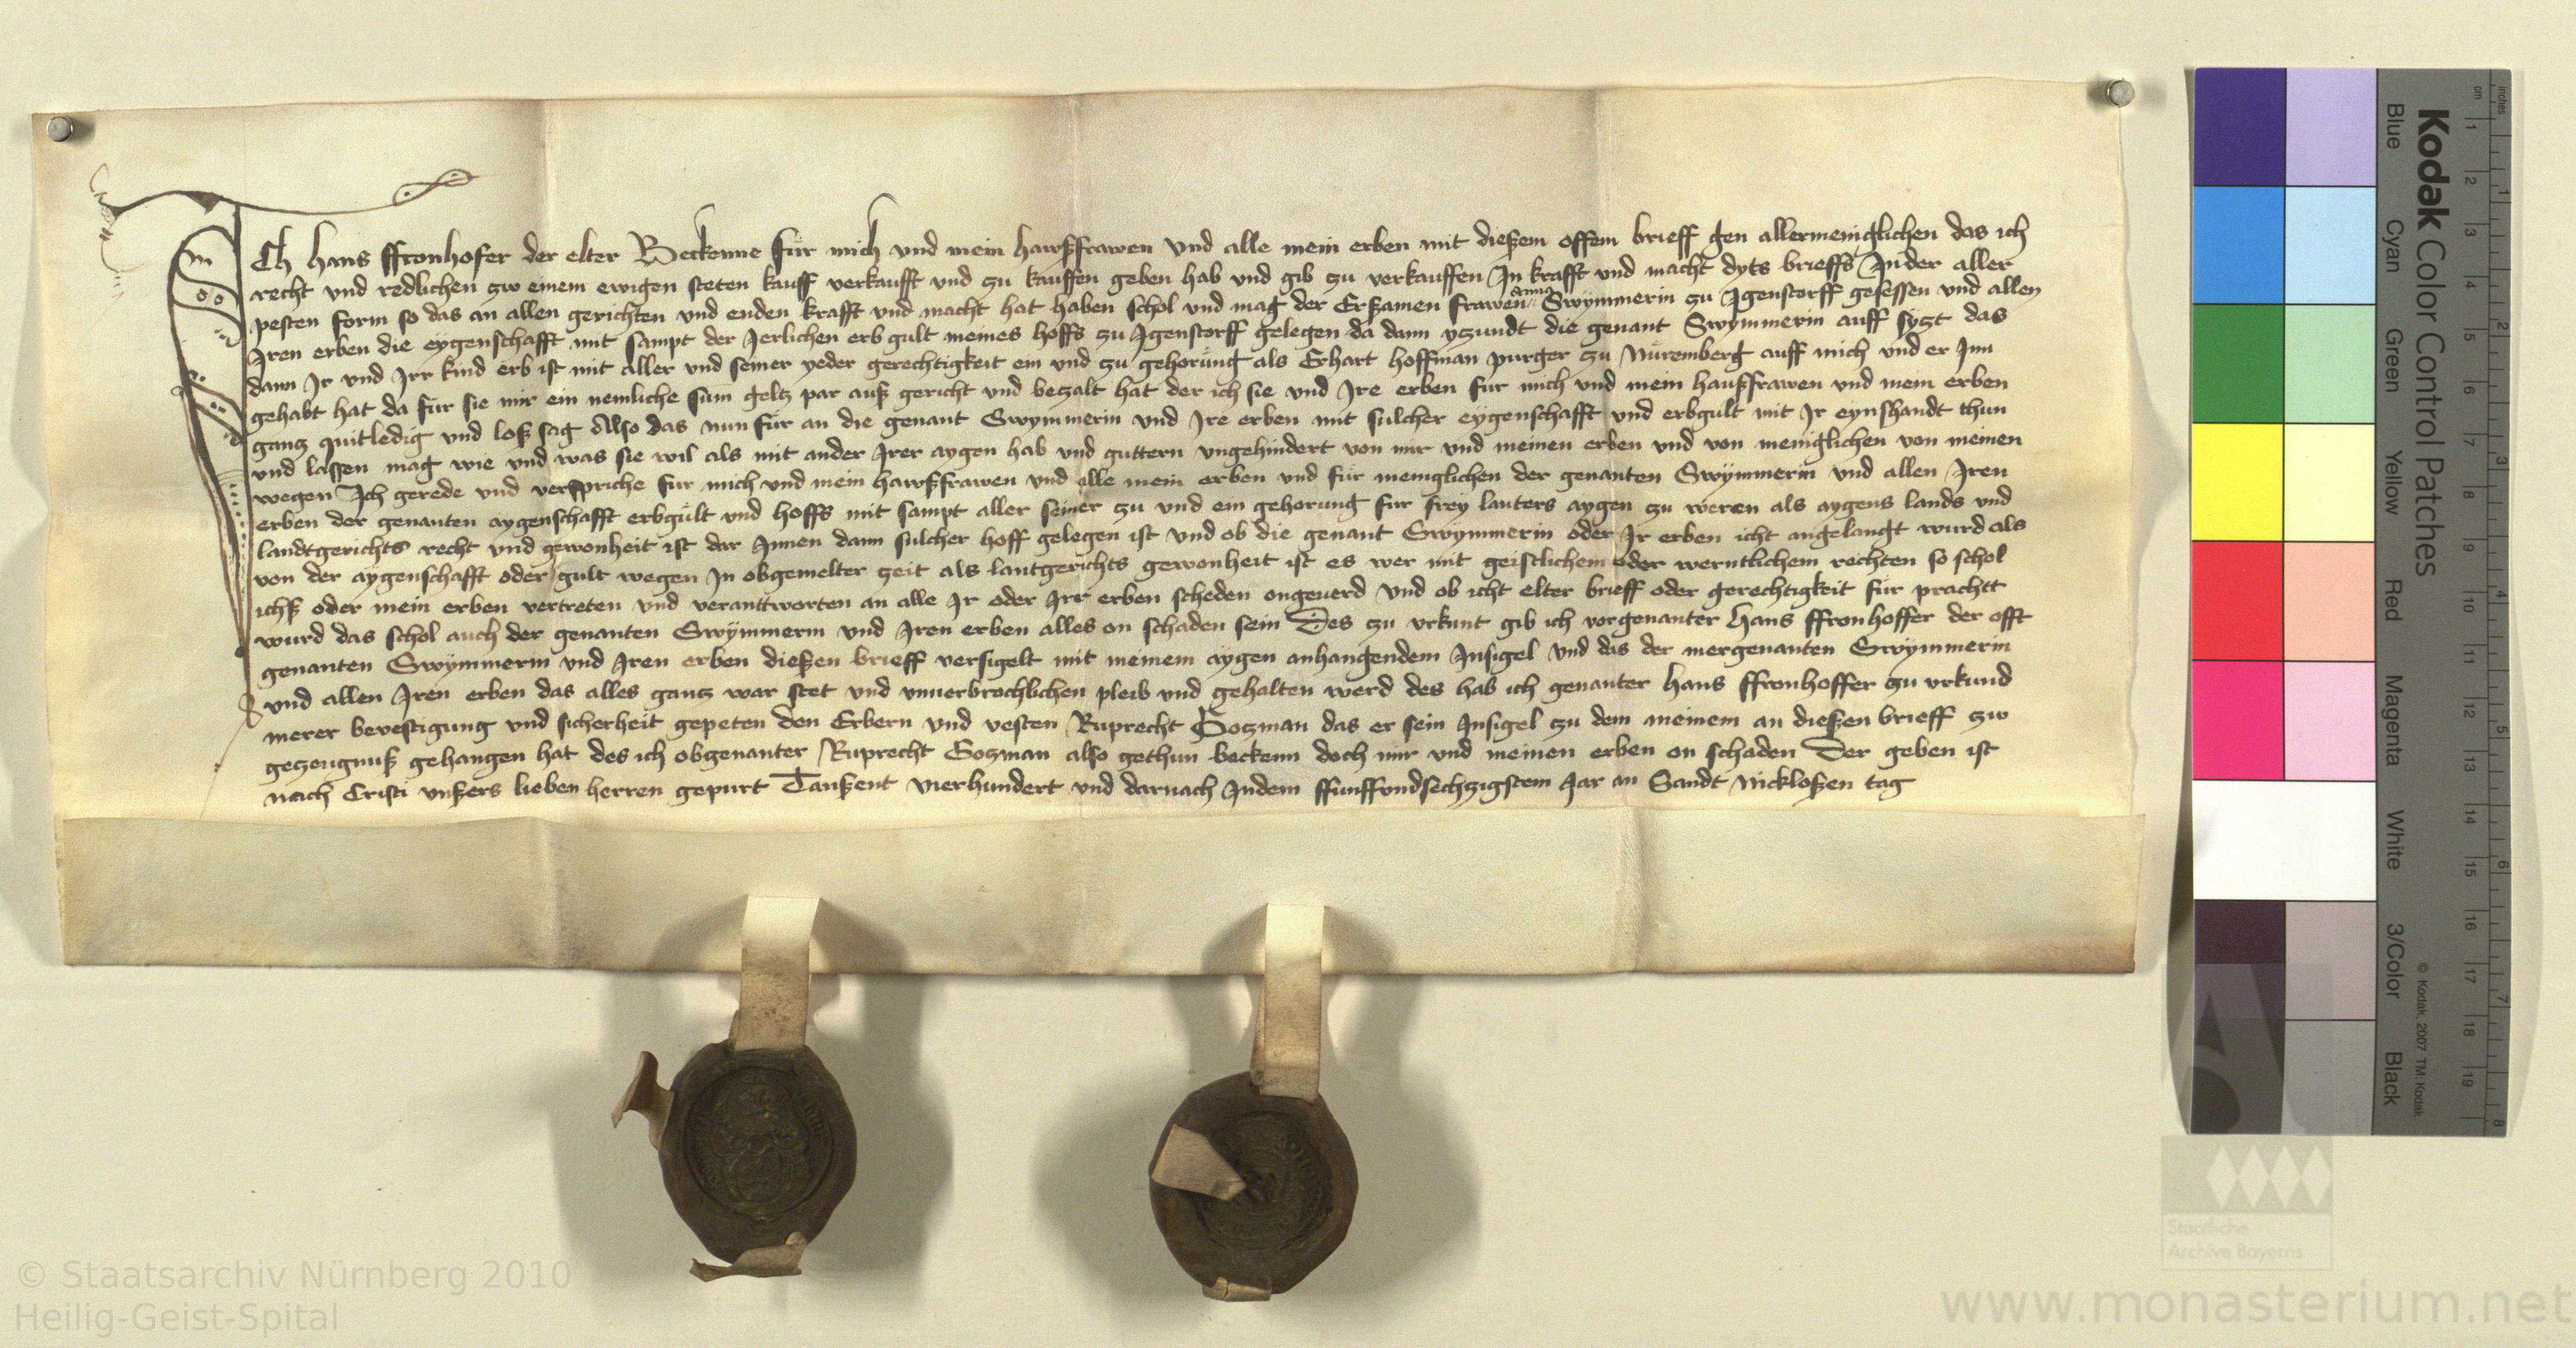 ICh hans ffronhofer der elter Beckenne für mich vnd mein hawßfrawen vnd alle mein erben mit dießem offem brieff gen allermeniglichen das ich
recht vnd redlichen zw einem ewigen steten kauff verkaufft vnd zu kauffen geben hab vnd gib zu verkauffen Jn krafft vnd macht dyts brieffs Jn der aller
pesten form so das an allen gerichten vnd enden krafft vnd macht hat haben schol vnd mag der Erßamen frawen anna Swÿmmerin zu Jgenstorff gesessen vnd allen
Jren erben die eygenschafft mit sampt der Jerlichen erb gult meines hoffs zu Jgenstorff gelegen da dann yzundt die genant Swÿmmerin auff syzt das
dann Jr vnd Jrr kind erb ist mit aller vnd seiner yeder gerechtigkeit ein vnd zu gehorung als Erhart hoffman purger zu Nüremberg auff mich vnd er Jnn
gehabt hat da für sie mir ein nemliche sum geltz par auß gericht vnd bezalt hat der ich sie vnd Jre erben für mich vnd mein haußfrawen vnd mein erben
gantz quitledig vnd loß sag Also das nun für an die genant Swymmerin vnd Jre erben mit sulcher eygenschafft vnd erbgult mit Jr eynshandt thun
vnd lassen mag wie vnd was sie wil als mit ander Jrer aygen hab vnd guttern vngehindert von mir vnd meinen erben vnd von meniglichen von meinen
wegen Jch gerede vnd verspriche für mich vnd mein hawßfrawen vnd alle mein erben vnd für meniglichen der genanten Swÿmmerin vnd allen Jren
erben der genanten aygenschafft erbgült vnd hoffs mit sampt aller seiner zu vnd ein gehorung für frey lauters aygen zu weren als aygens lands vnd
landtgerichts recht vnd gewonheit ist dar Jnnen dann sulcher hoff gelegen ist vnd ob die genant Swymmerin oder Jr erben icht angelangt wurd als
von der aygenschafft oder gult wegen Jn obgemelter zeit als lantgerichts gewonheit ist es wer mit geistlichem oder werntlichem rechten so schol
ichß oder mein erben vertreten vnd veranttworten an alle Jr oder Jrr erben scheden ongeuerd vnd ob icht elter brieff oder gerechtigkeit für prachtt
wurd das schol auch der genanten Swÿmmerin vnd Jren erben alles on schaden sein Des zu vrkunt gib ich vorgenanter hans ffronhoffer der offt
genanten Swÿmmerin vnd Jren erben dießen brieff versigelt mit meinem aygen anhangendem Jnsigel vnd das der mergenanten Swÿmmerin
vnd allen Jren erben das alles gantz war stet vnd vnuerbrochlichen pleib vnd gehalten werd des hab ich genanter hans ffronhoffer zu vrkund
merer bevestigung vnd sicherheit gepeten den Erbern vnd vesten Ruprecht Gozman das er sein Jnsigel zu dem meinem an dießen brieff zw
gezeugnuß gehangen hat des ich obgenanter Ruprecht Gozman also gethun beckenn doch mir vnd meinen erben on schaden Der geben ist
nach Cristi vnßers lieben herren gepurt Taußent vierhundert vnd darnach Jndem ffunffvndsechzigstem Jar an Sandt Nickloßen tag
Kodak Color Control Patches
Blue Cyan Green Yellow Red Magenta White 3/Color Black
© Kodak, 2007 TM: Kodak
cm 1 2 3 4 5 6 7 8 9 10 11 12 13 14 15 16 17 18 19
inches 1 2 3 4 5 6 7 8
Staatliche
Archive Bayerns
© Staatsarchiv Nürnberg 2010
Heilig-Geist-Spital
www.monasterium.net